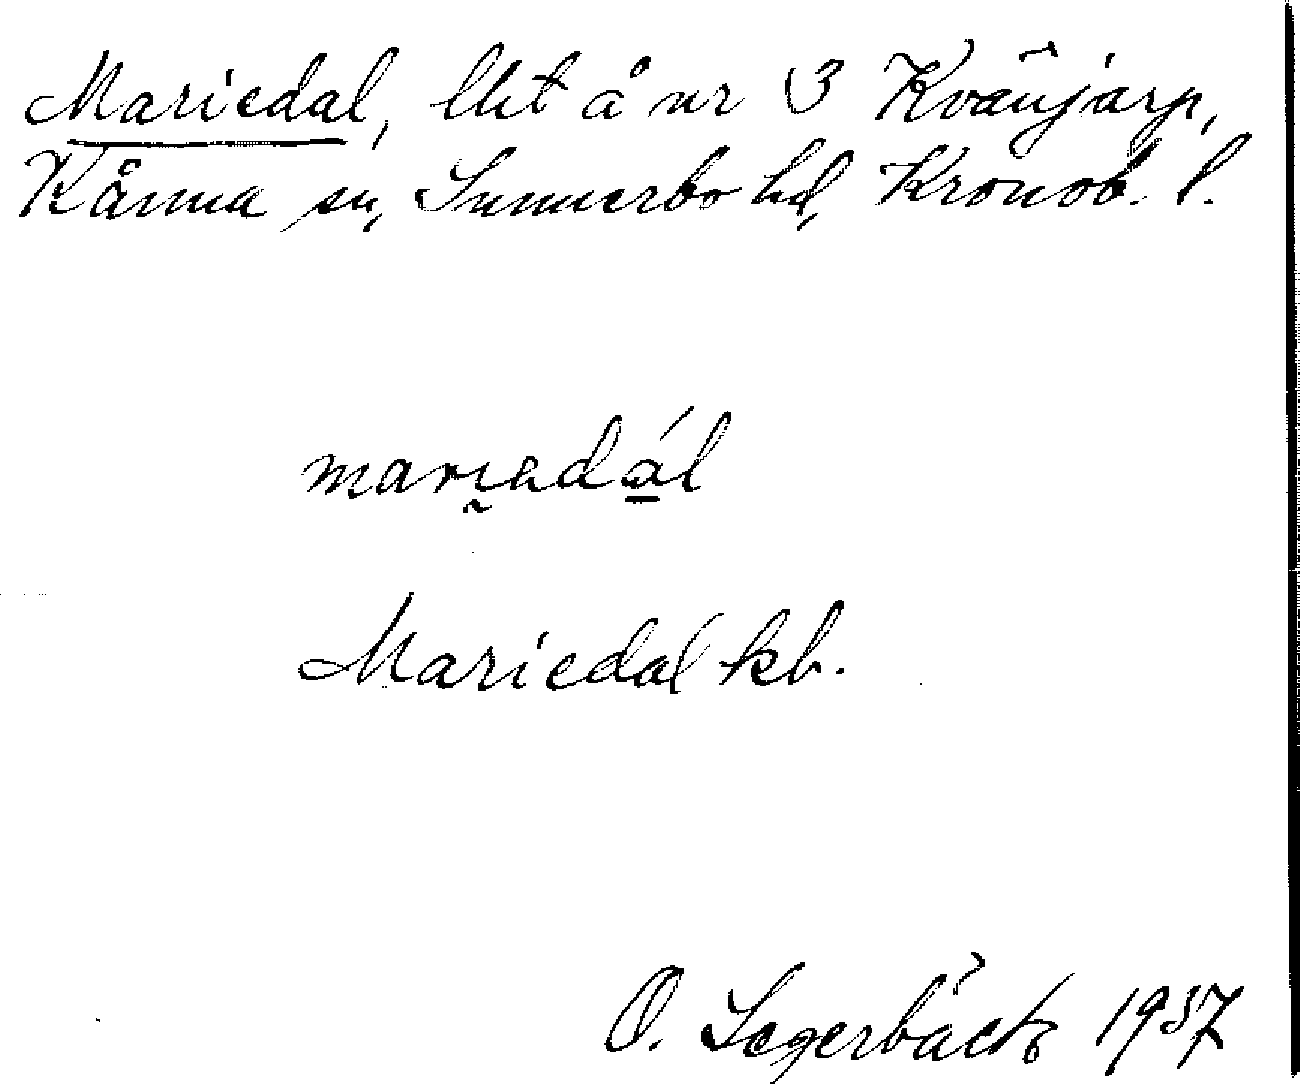 Mariedal, lht å nr 3 Kvänjarp,
Kånna sn, Sunnerbo hd, Kronob. l.
mariadál
Mariedal kb.
O. Segerbäck 1937